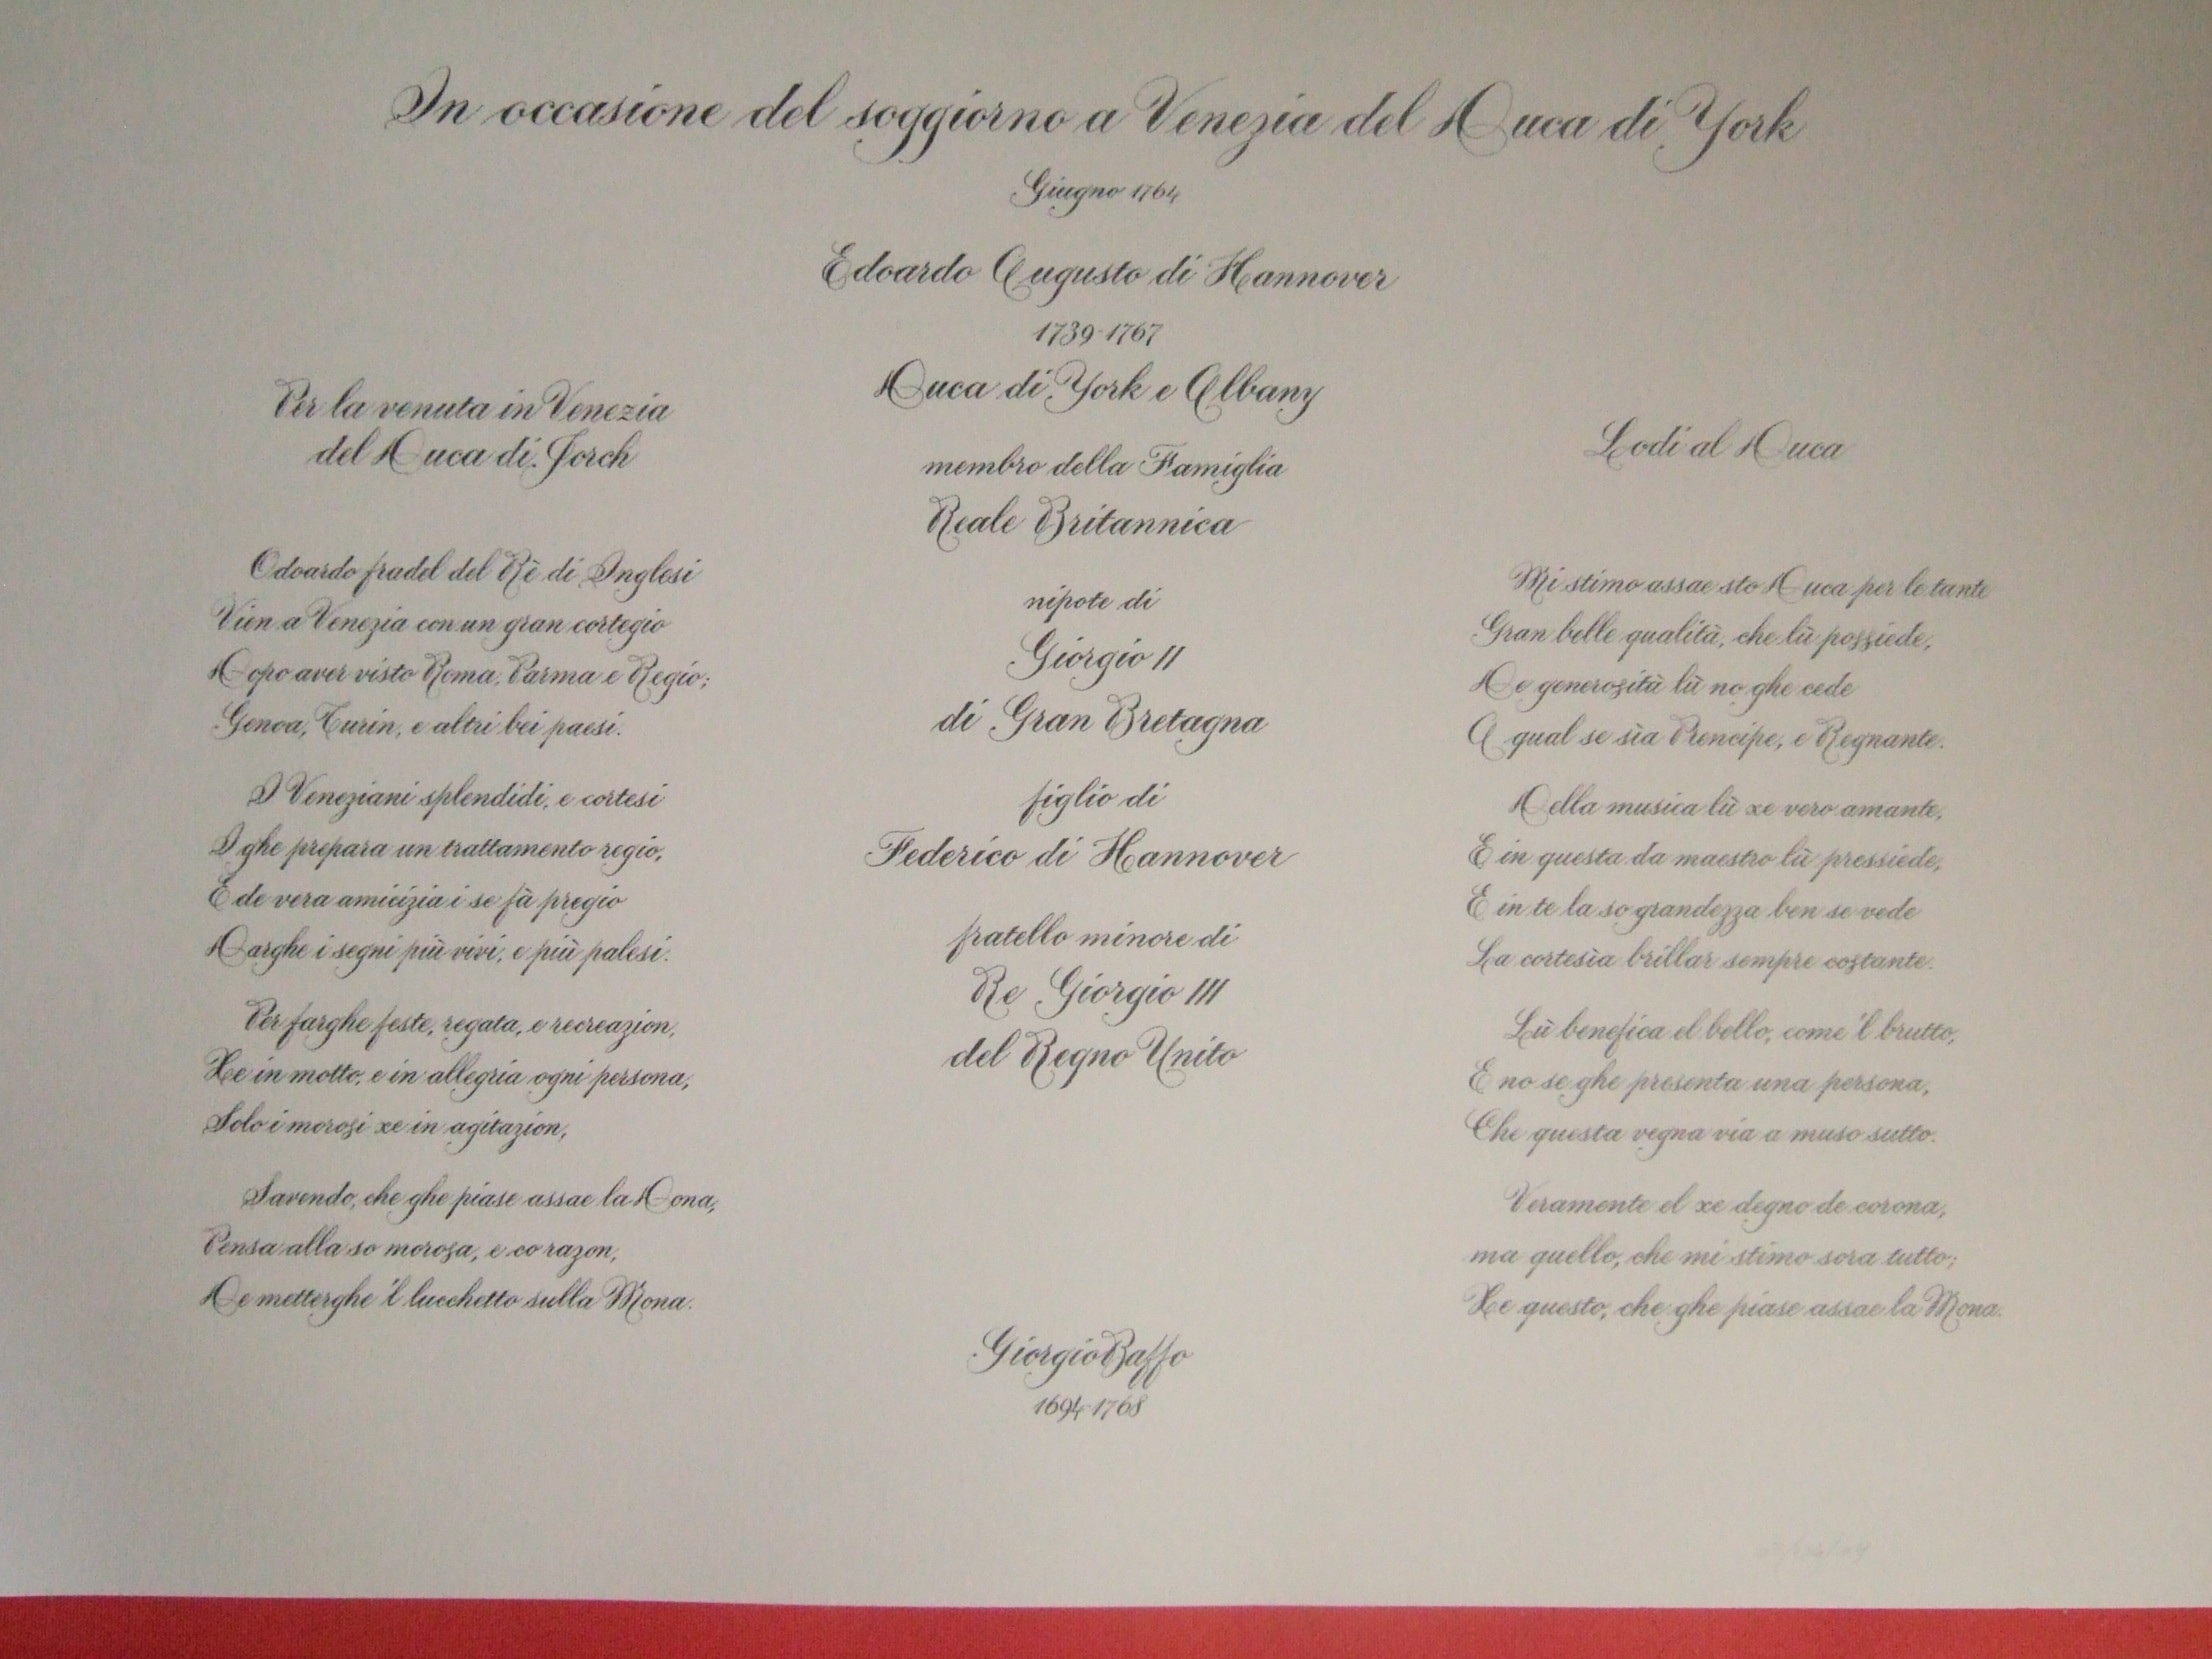 In occasione del soggiorno a Venezia del Duca di York
Giugno 1764
Edoardo Augusto di Hannover
1739-1767
Duca di York e Albany
membro della Famiglia
Reale Britannica
nipote di
Giorgio II
di Gran Bretagna
figlio di
Federico di Hannover
fratello minore di
Re Giorgio III
del Regno Unito
Per la venuta in Venezia
del Duca di Jorch
Odoardo fradel del Rè di Inglesi
Vien a Venezia con un gran cortegio
Dopo aver visto Roma, Parma e Regio;
Genoa, Turin, e altri bei paesi.
I Veneziani splendidi, e cortesi
I ghe prepara un trattamento regio,
E de vera amicizia i se fà pregio
Darghe i segni più vivi, e più palesi.
Per farghe feste, regata, e recreazion,
Xe in motto, e in allegria ogni persona,
Solo i morosi xe in agitazion,
Savendo, che ghe piase assae la Dona,
Pensa alla so morosa, e co razon,
De metterghe 'l lucchetto sulla Mona.
Lodi al Duca
Mi stimo assae sto Duca per le tante
Gran belle qualità, che lù possiede,
De generosità lù no ghe cede
A qual se sia Prencipe, e Regnante.
Della musica lù xe vero amante,
E in questa da maestro lù pressiede,
E in te la so grandezza ben se vede
La cortesìa brillar sempre costante.
Lù benefica el bello, come 'l brutto,
E no se ghe presenta una persona,
Che questa vegna via a muso sutto.
Veramente el xe degno de corona,
ma quello, che mi stimo sora tutto;
Xe questo, che ghe piase assae la Mona.
Giorgio Baffo
1694-1768